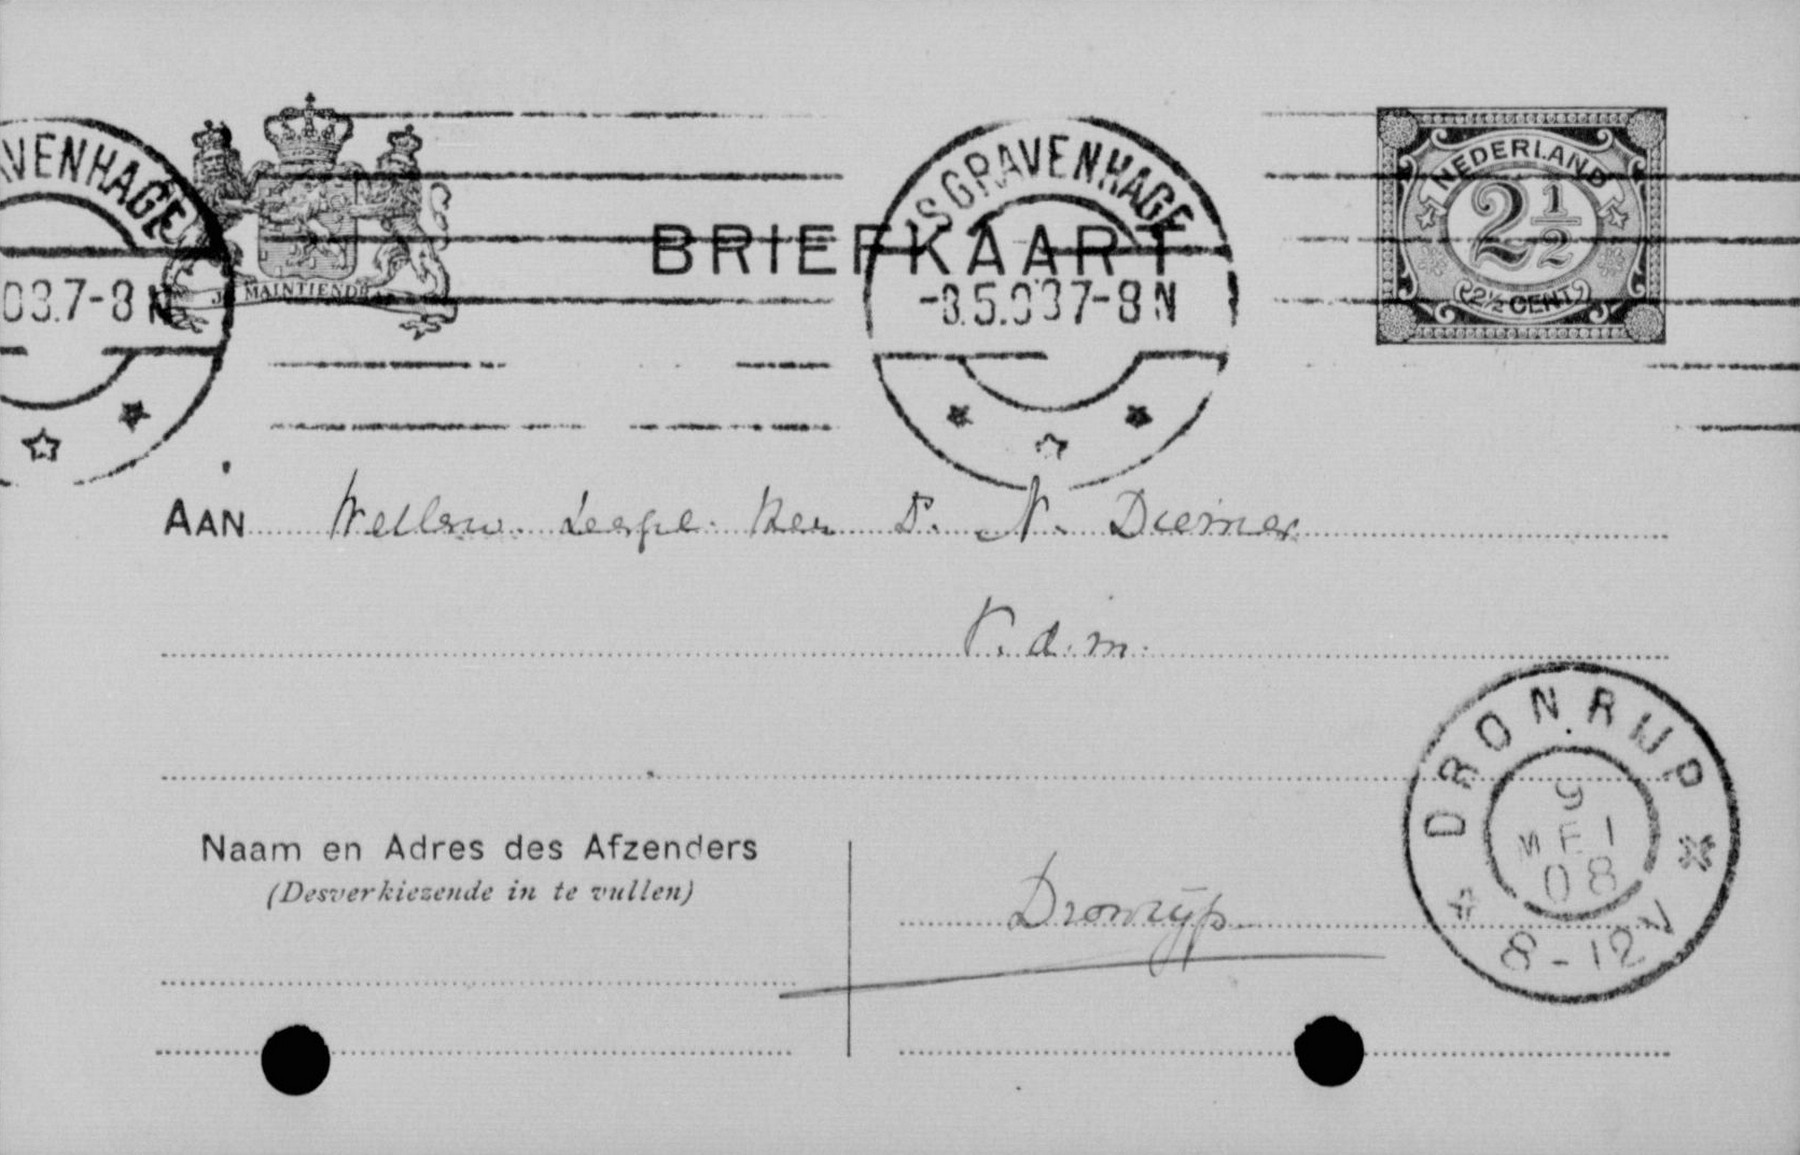 AVENHAGE
'S GRAVENHAGE
NEDERLAND
2 1/2
2½ CENT
JE MAINTIENDRAI
BRIEFKAART
08.7-8 N
-8.5.087-8 N
AAN Weleerw. Zeergel. Heer Ds. N. Diemer
V. d. m.
DRONRIJP
9
MEI
08
8-12V
Naam en Adres des Afzenders
(Desverkiezende in te vullen)
Dronrijp